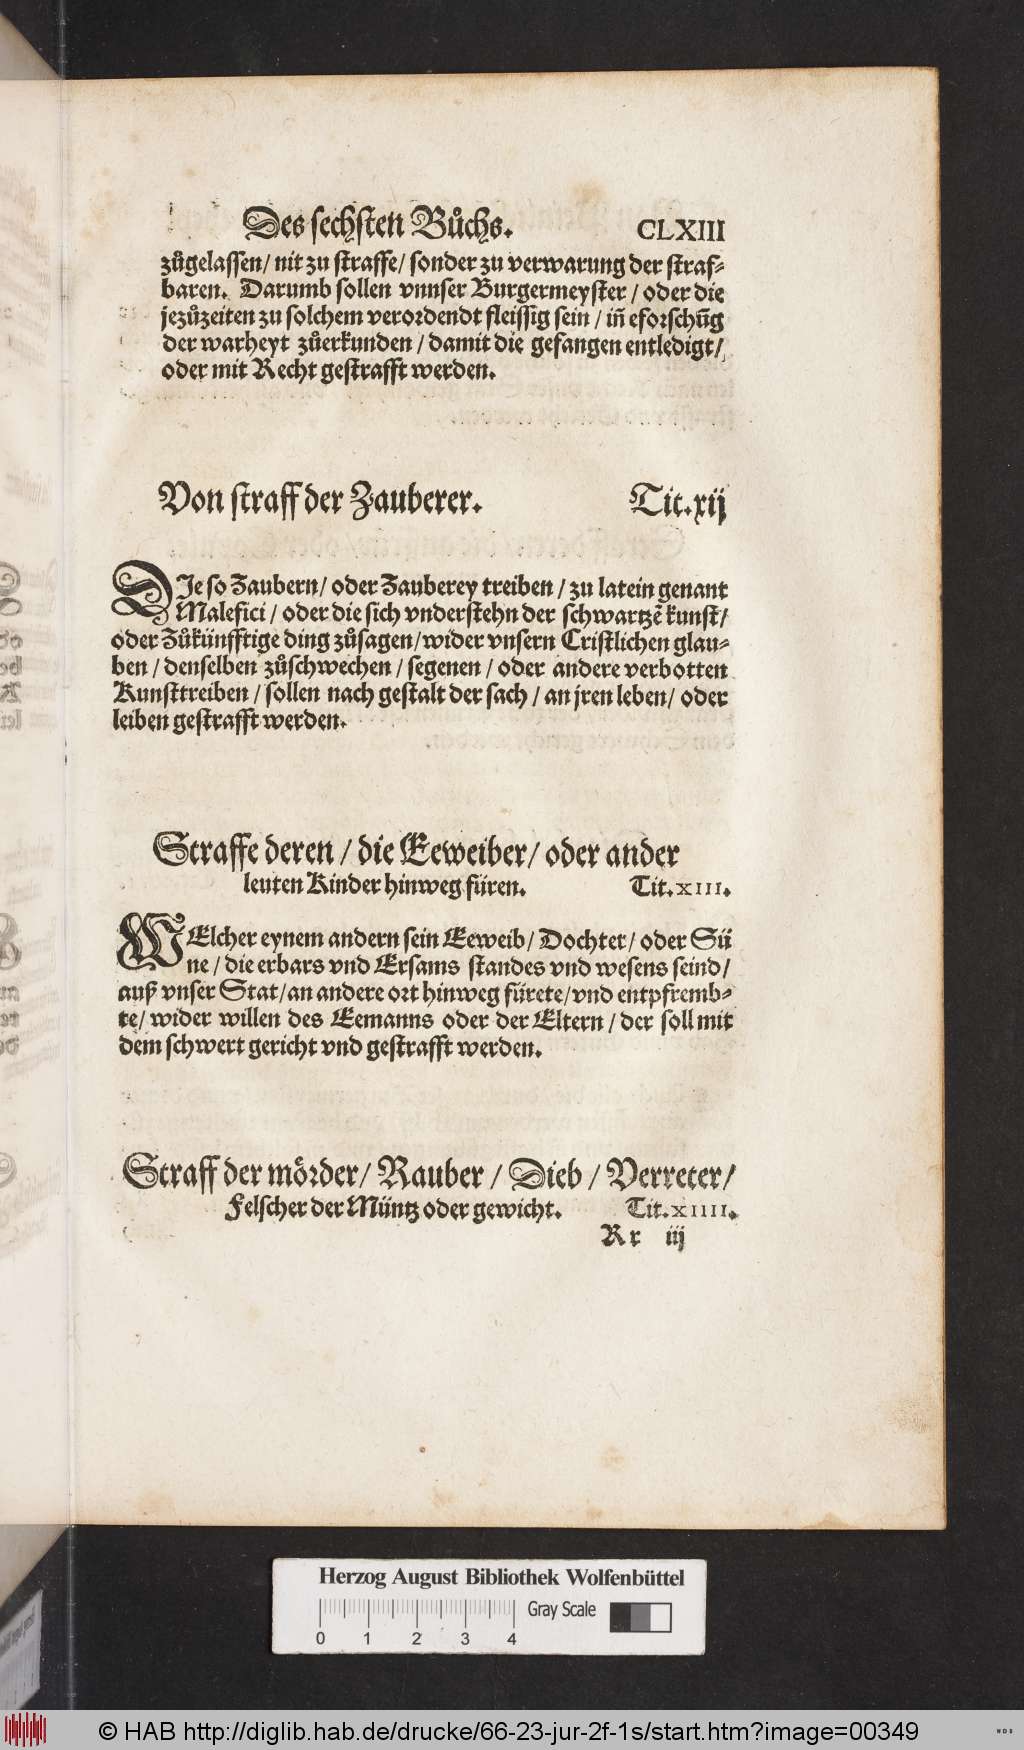 Des sechsten Bůchs. CLXIII
zůgelassen/ nit zu straffe/ sonder zu verwarung der straf⸗
baren. Darumb sollen vnnser Burgermeyster / oder die
jezůzeiten zu solchem verordendt fleissig sein / iñ eforschūg
der warheyt zůerkunden / damit die gefangen entledigt/
oder mit Recht gestrafft werden.
Von straff der Zauberer. Tit.xij
DIe so Zaubern/ oder Zauberey treiben / zu latein genant
Malefici / oder die sich vnderstehn der schwartzē kunst/
oder Zůkünfftige ding zůsagen/wider vnsern Cristlichen glau⸗
ben / denselben zůschwechen / segenen / oder andere verbotten
Kunsttreiben / sollen nach gestalt der sach / an jren leben/ oder
leiben gestrafft werden.
Straffe deren / die Eeweiber/ oder ander
leuten Kinder hinweg füren. Tit.XIII.
WElcher eynem andern sein Eeweib/ Dochter/ oder Sü
ne / die erbars vnd Ersams standes vnd wesens seind/
auß vnser Stat/an andere ort hinweg fürete/vnd entpfremb⸗
te/ wider willen des Eemanns oder der Eltern / der soll mit
dem schwert gericht vnd gestrafft werden.
Straff der mörder/ Rauber / Dieb / Verreter/
Felscher der Müntz oder gewicht. Tit.XIIII.
Rr iij
Herzog August Bibliothek Wolfenbüttel
Gray Scale
0 1 2 3 4
© HAB http://diglib.hab.de/drucke/66-23-jur-2f-1s/start.htm?image=00349